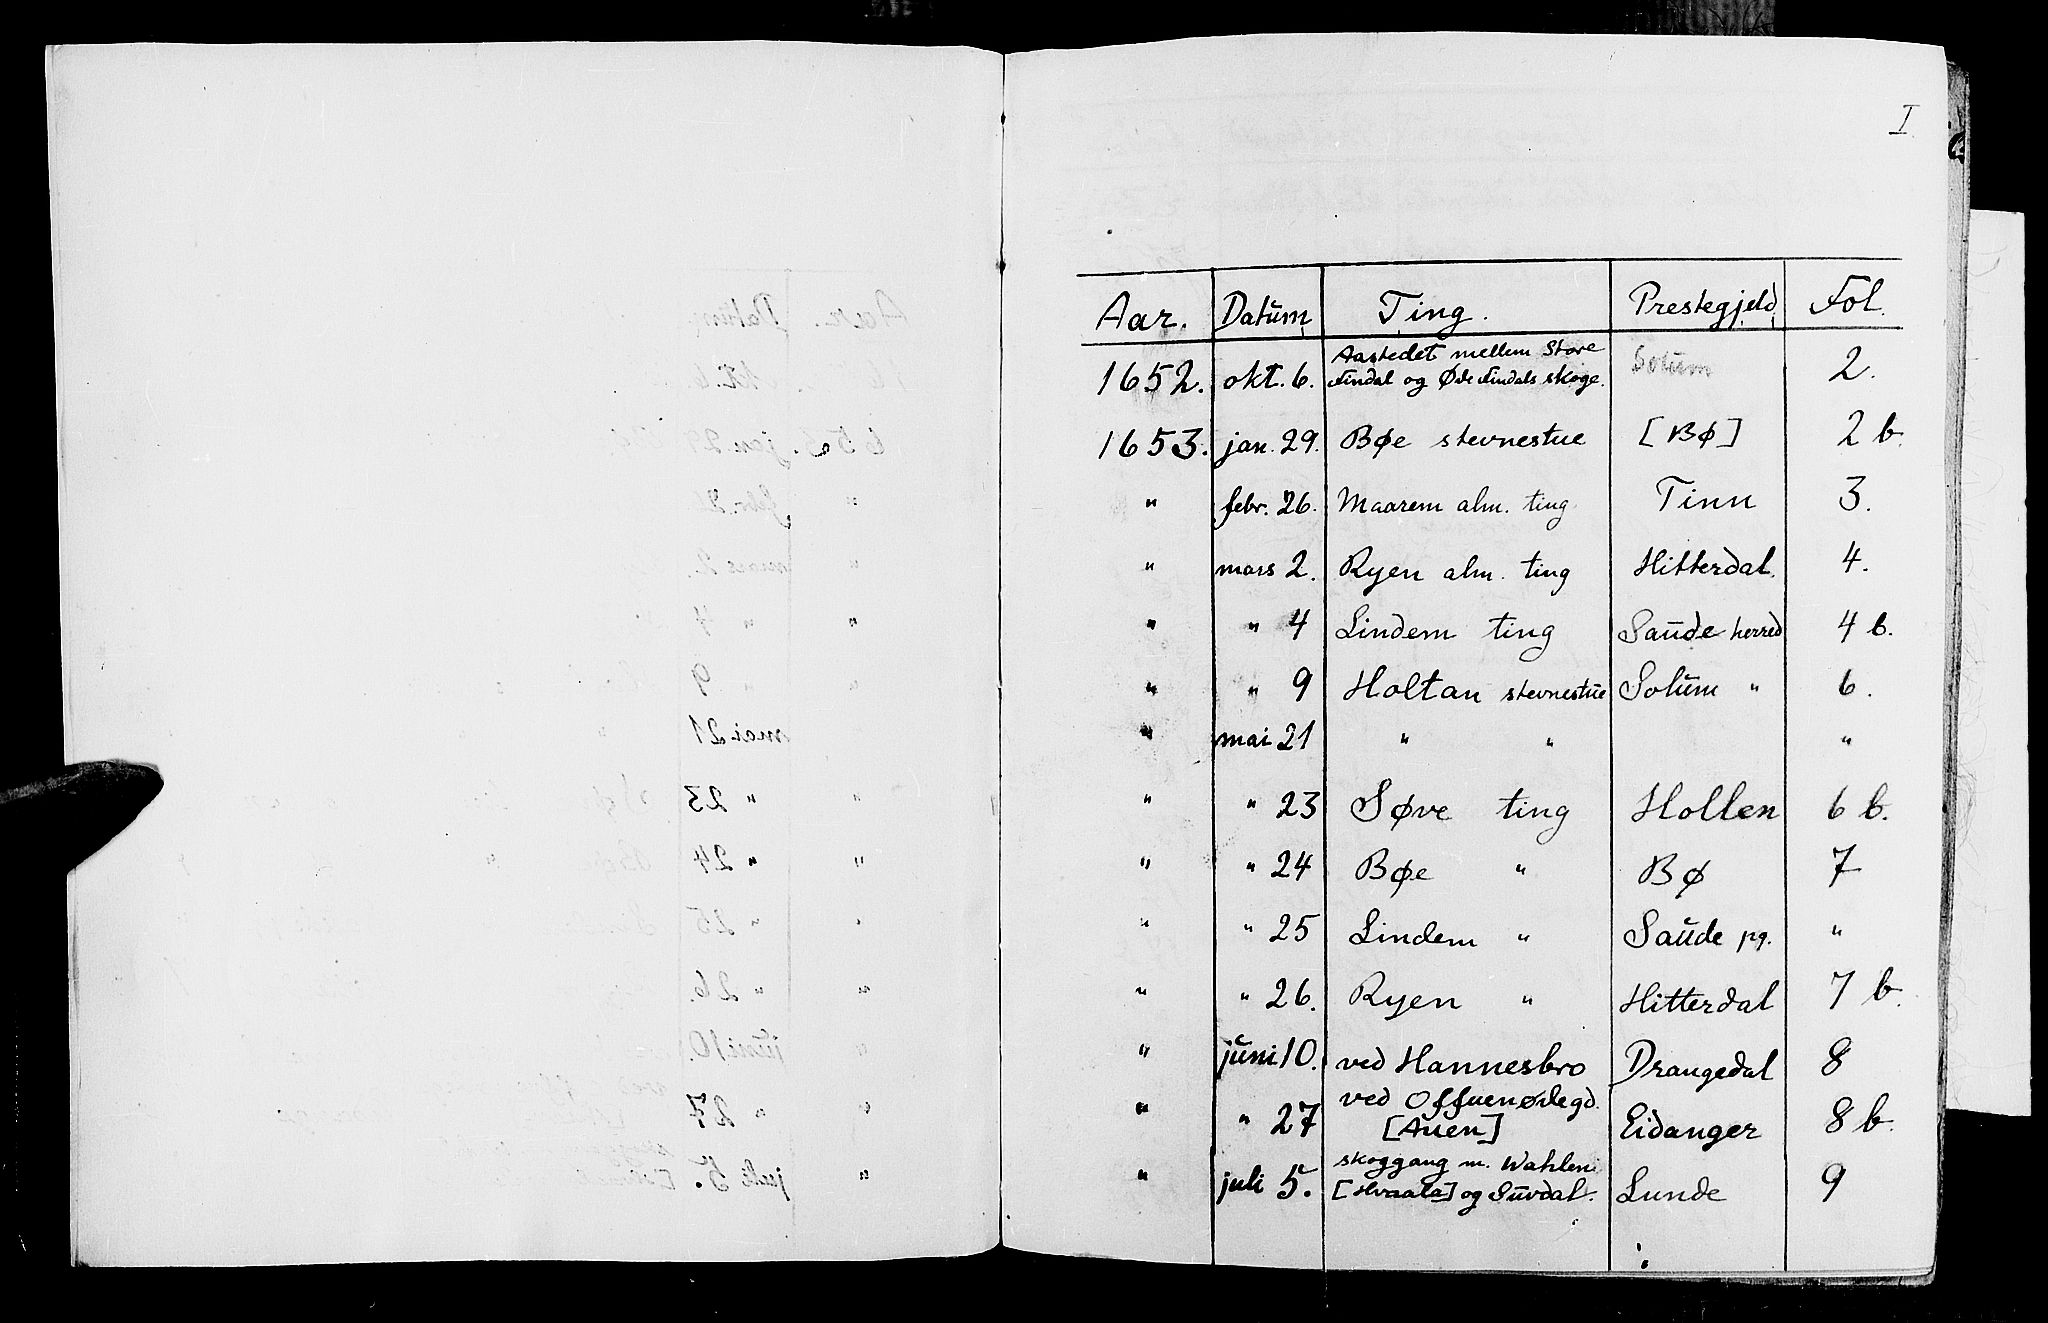 I
Aar. Datum Ting. Prestegjeld Fol.
1652. okt. 6. Aastedet mellem Store Findal og Øde Findals skoge. Solum 2.
1653. jan. 29. Bøe stevnestue [Bø] 2 b.
" febr. 26. Maarem alm. ting Tinn 3.
" mars 2. Ryen alm. ting Hitterdal. 4.
" " 4 Lindem ting Saude herred 4 b.
" " 9 Holtan stevnestue Solum " 6.
" mai 21 " " "
" " 23 Søve ting Hollen 6 b.
" " 24 Bøe " Bø 7
" " 25 Lindem " Saude pg. "
" " 26. Ryen " Hitterdal 7 b.
" juni 10. ved Hannesbro Drangedal 8
" " 27 ved Offuenødegd. [Auen] Eidanger 8 b.
" juli 5. skoggang m. Wahlen [Hvaala] og Suvdal. Lunde 9